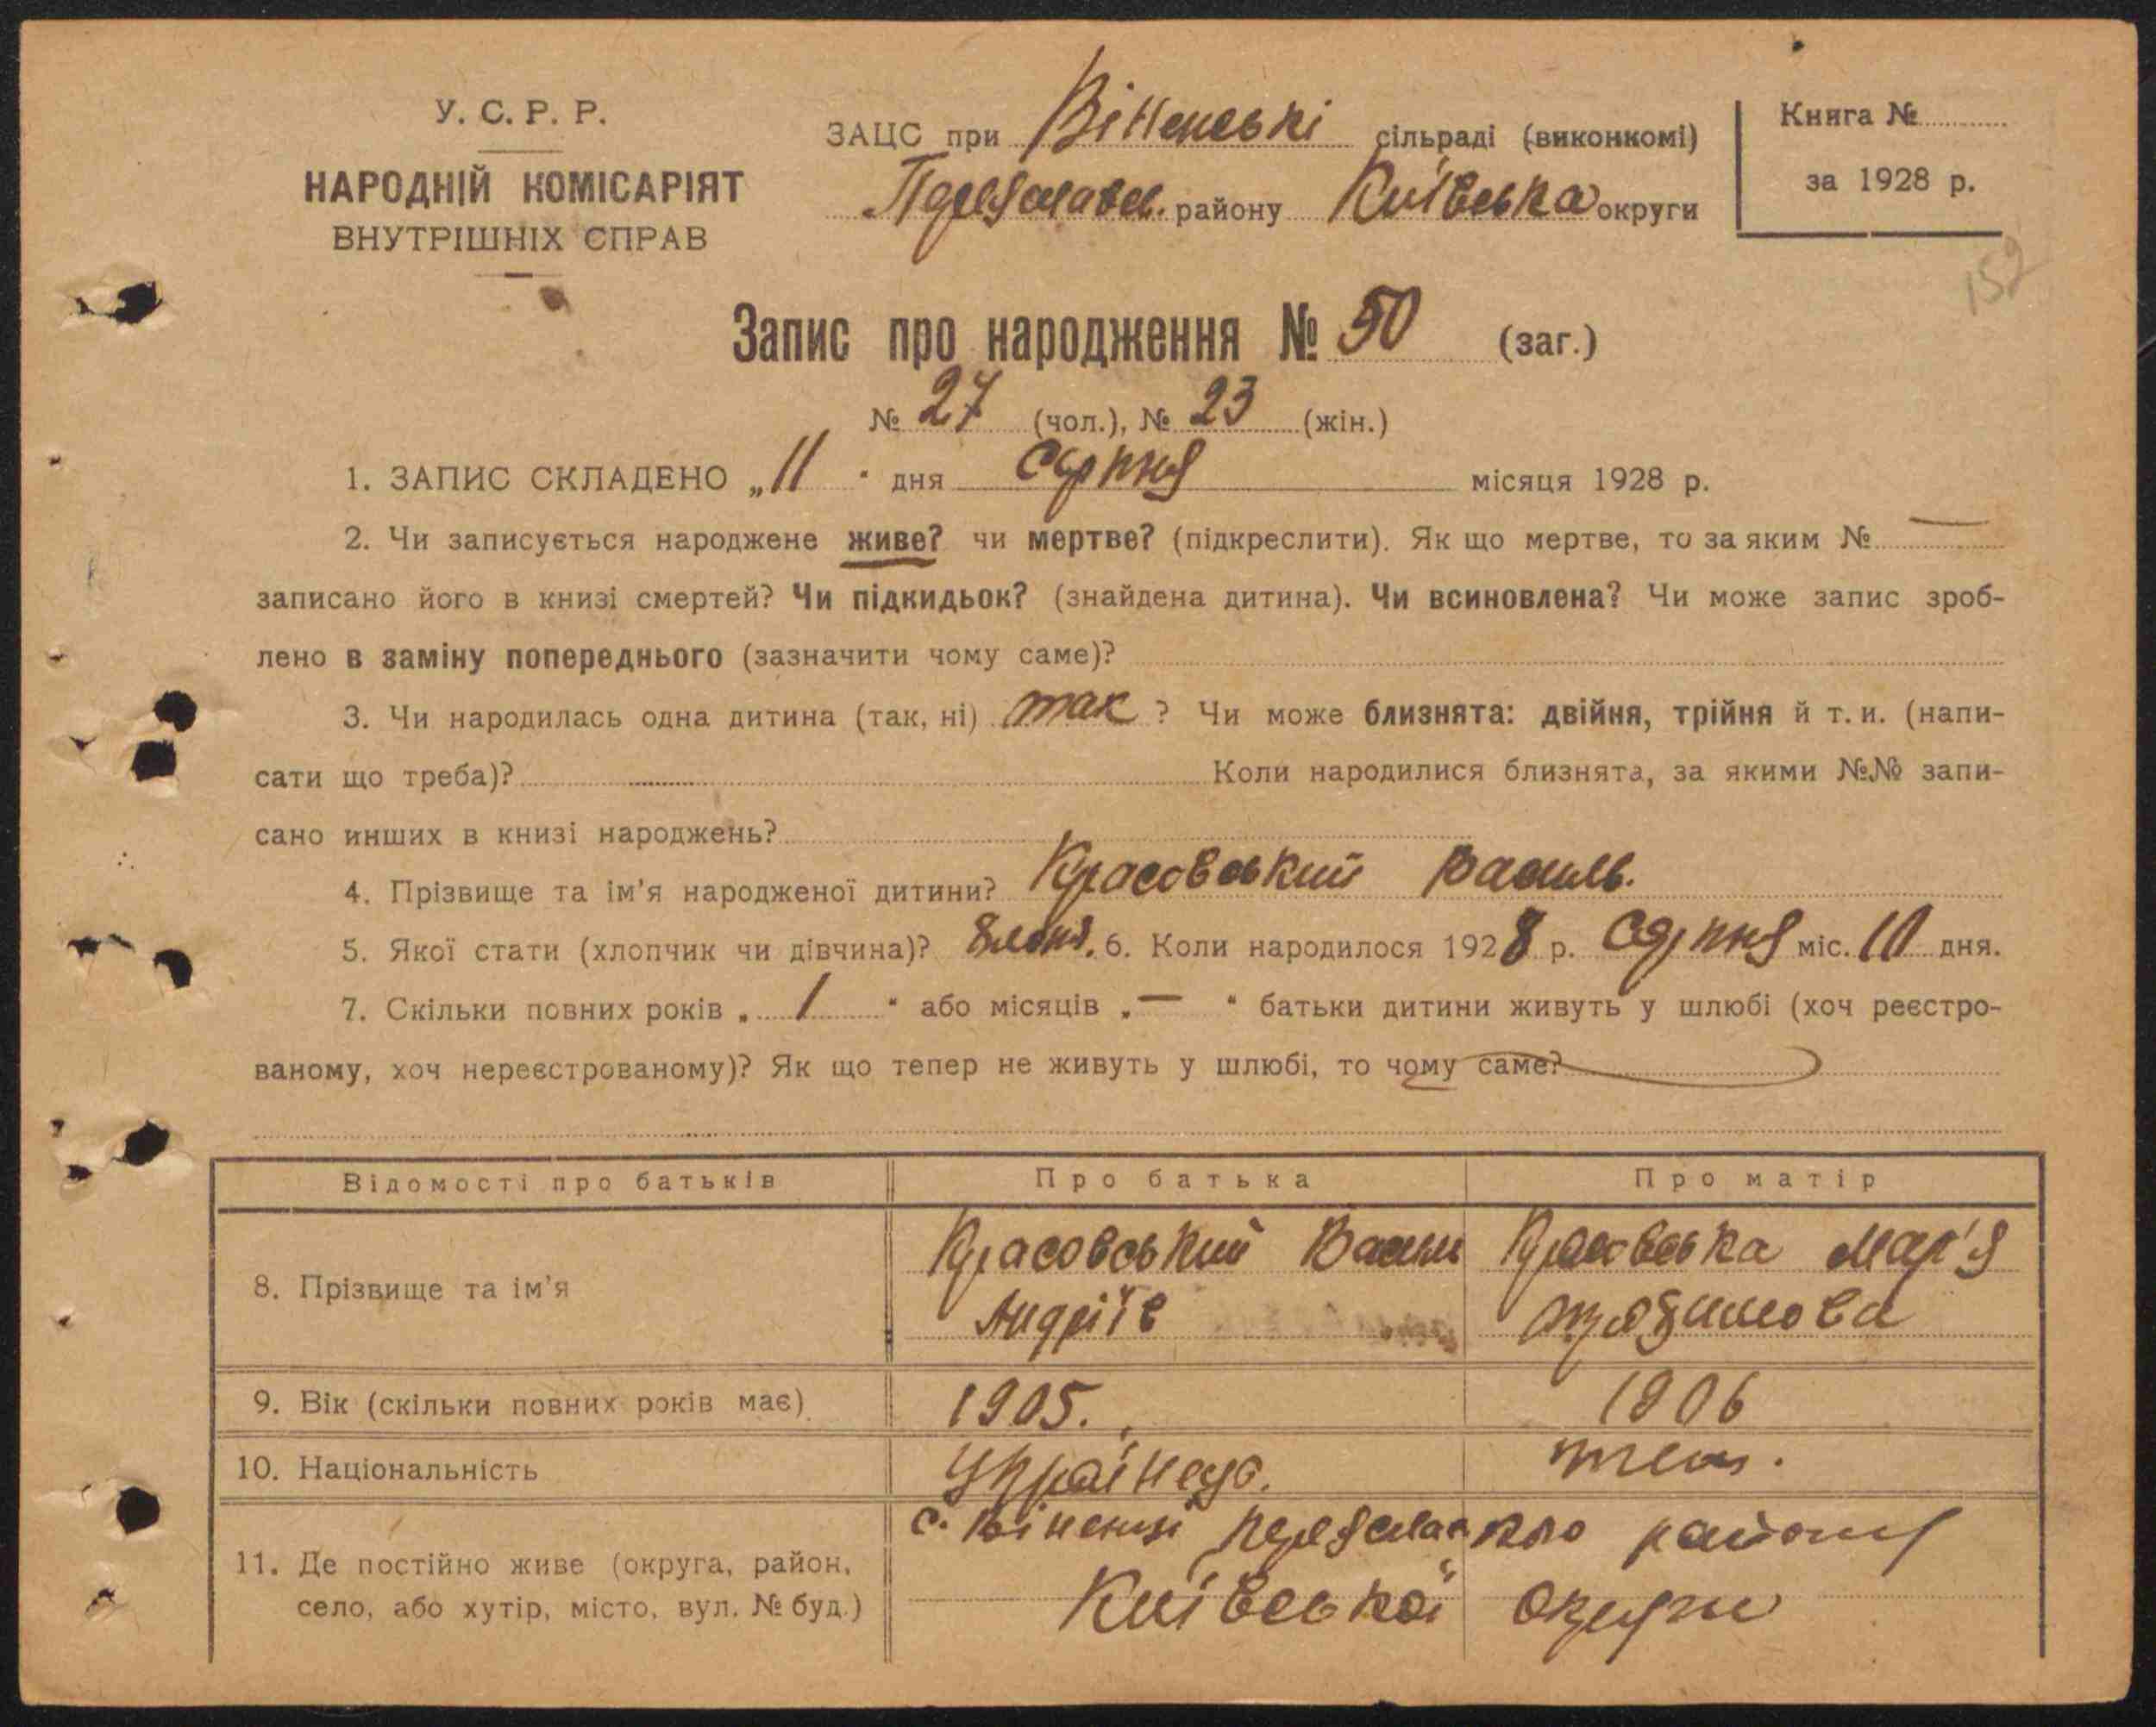 У. С. Р. Р.
НАРОДНІЙ КОМІСАРІЯТ
ВНУТРІШНІХ СПРАВ
ЗАЦС при Віненські сільраді (виконкомі)
району Київська округи
Книга №
за 1928 р.
152
Запис про народження № 50 (заг.)
№ 27 (чол.), № 23 (жін.)
1. ЗАПИС СКЛАДЕНО „11" дня серпня місяця 1928 р.
2. Чи записується народжене живе? чи мертве? (підкреслити). Як що мертве, то за яким № —
записано його в книзі смертей? Чи підкидьок? (знайдена дитина). Чи всиновлена? Чи може запис зроб-
лено в заміну попереднього (зазначити чому саме)?
3. Чи народилась одна дитина (так, ні) так ? Чи може близнята: двійня, трійня й т. и. (напи-
сати що треба)? Коли народилися близнята, за якими №№ запи-
сано инших в книзі народжень?
4. Прізвище та ім'я народженої дитини? Красовський Василь.
5. Якої стати (хлопчик чи дівчина)? 6. Коли народилося 1928 р. Серпня міс. 10 дня.
7. Скільки повних років „ 1 " або місяців „ — " батьки дитини живуть у шлюбі (хоч реєстро-
ваному, хоч нереєстрованому)? Як що тепер не живуть у шлюбі, то чому саме?
Відомості про батьків Про батька Про матір
8. Прізвище та ім'я Красовський Василь Красовська Мар'я
Андріїв
9. Вік (скільки повних років має) 1905. 1906
10. Національність Українець. теж.
11. Де постійно живе (округа, район, с. Віненці Переяславкго району
село, або хутір, місто, вул. № буд.) Київської округи